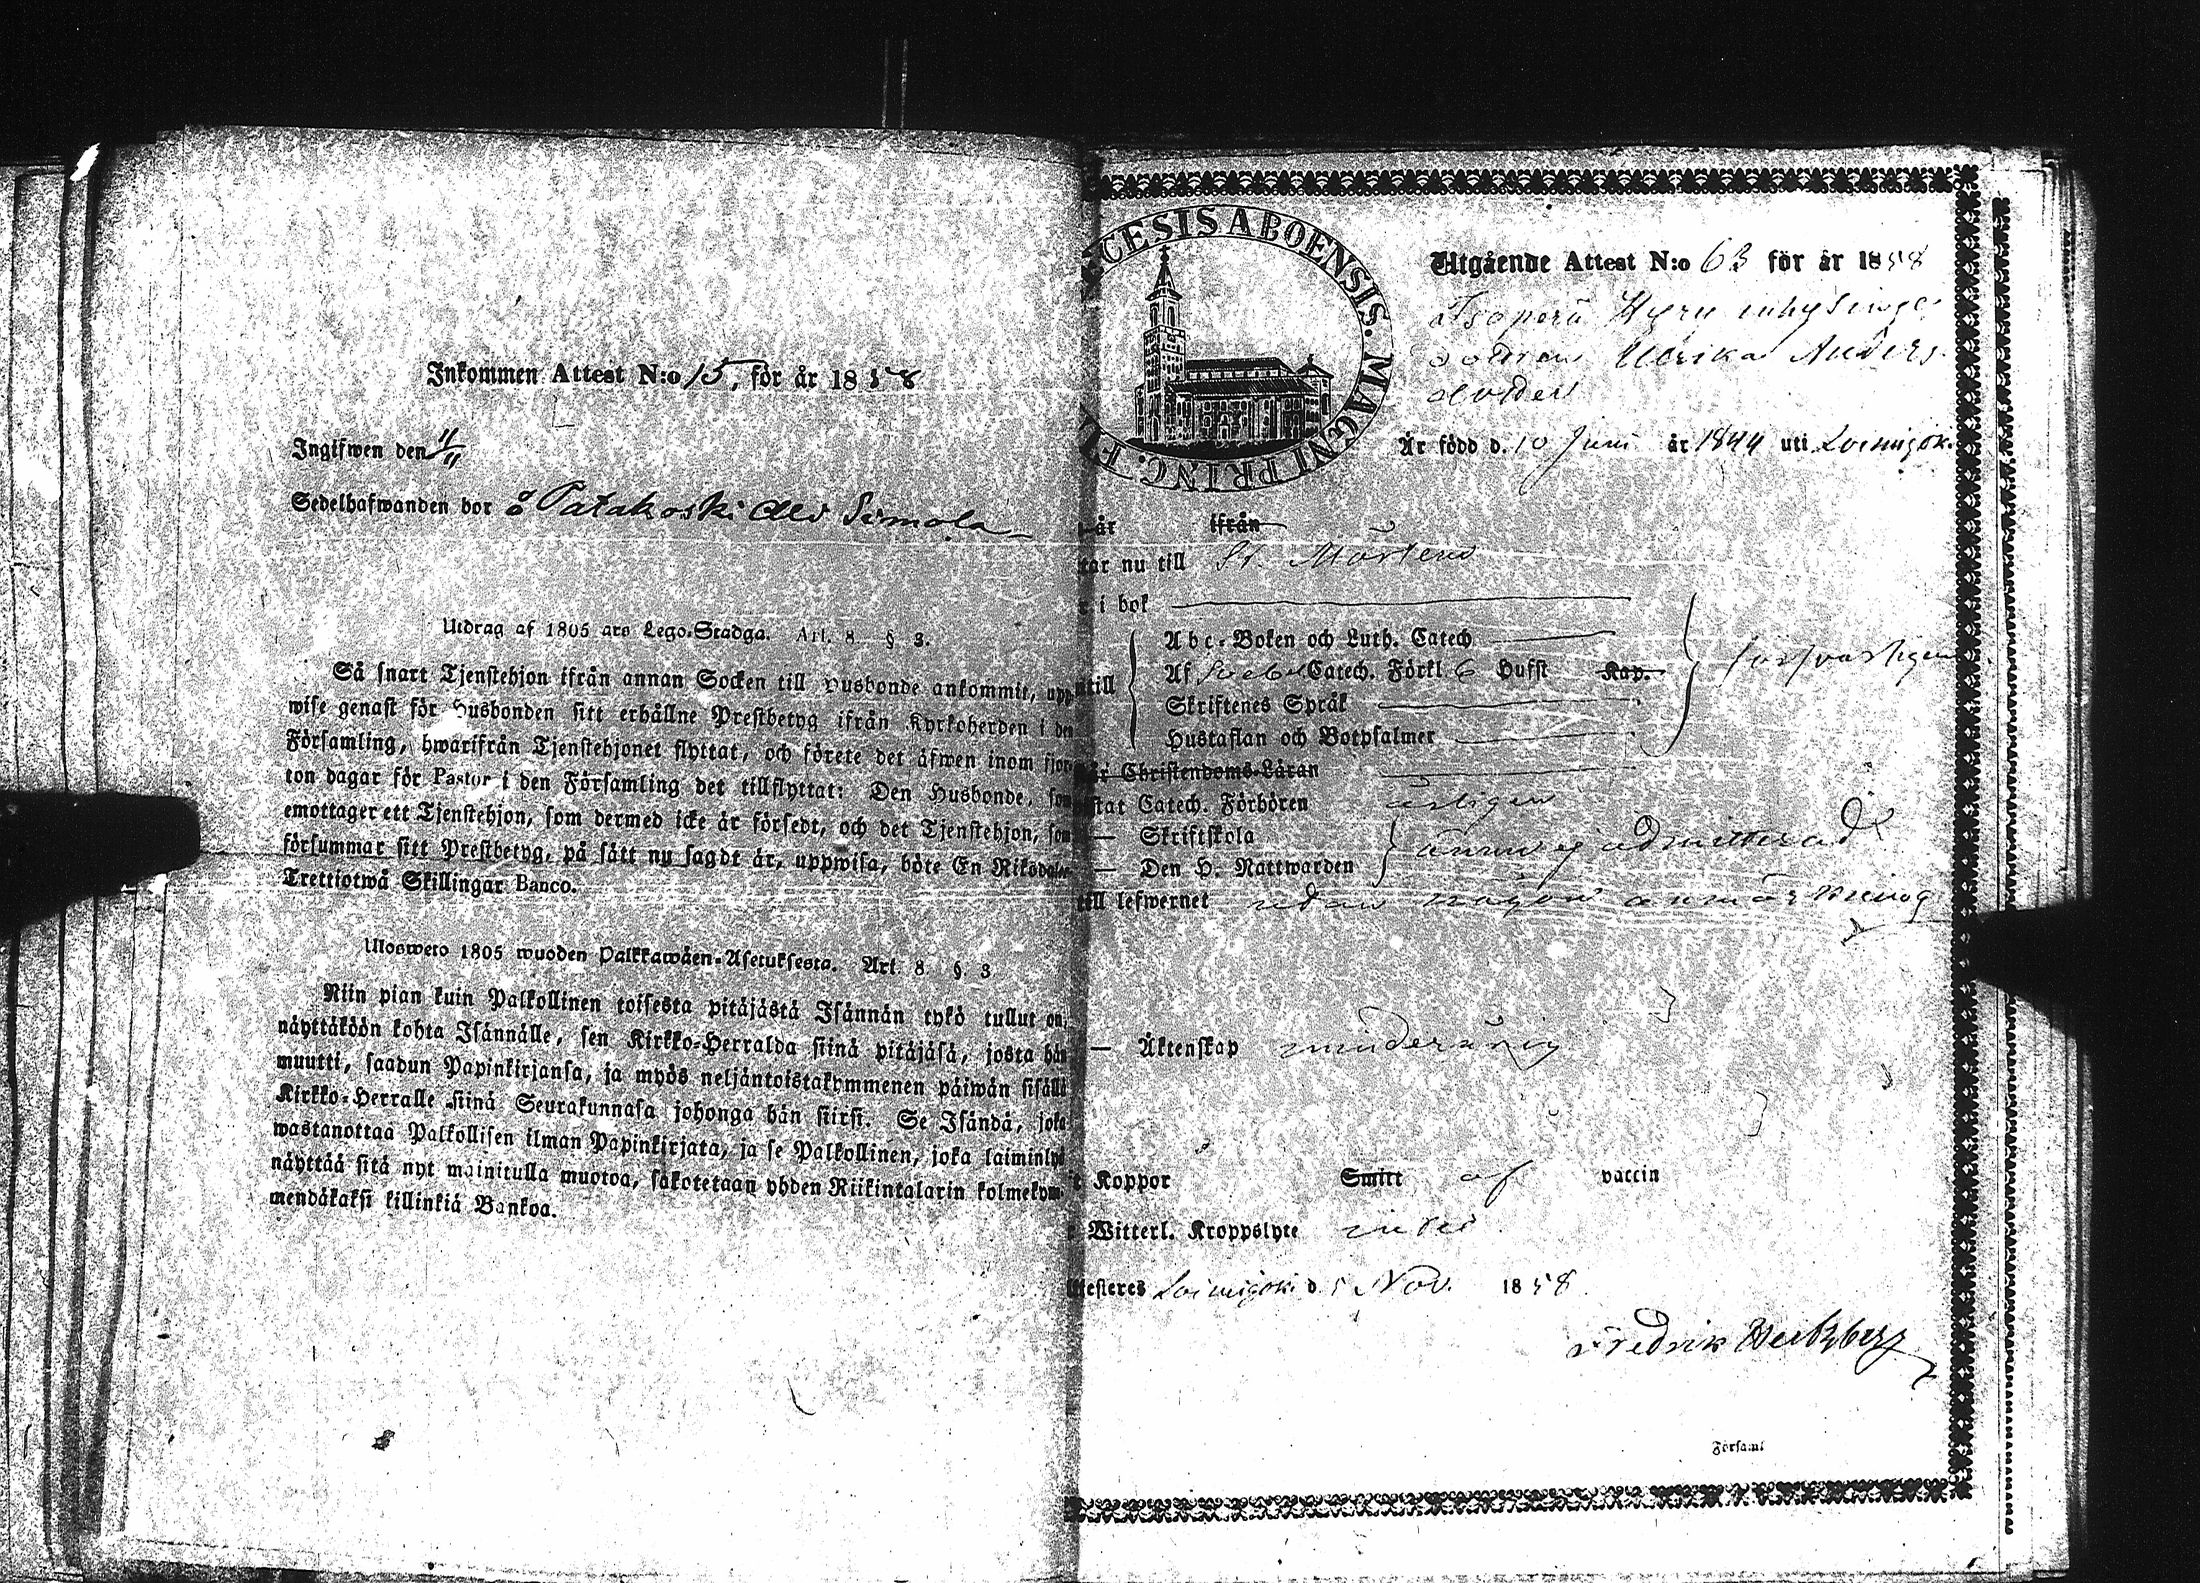 Inkommen Attest N:o 15, för år 1858
Ingifwen den 11/11
Sedelhafwanden bor å Patakoski Simola
Utdrag af 1805 års Lego-Stadga. Art. 8 § 3.
Så snart Tjenstehjon ifrån annan Socken till Husbonde ankommit, upp-
wise genast för Husbonden sitt erhållne Prestbetyg ifrån Kyrkoherden i den
Församling, hwarifrån Tjenstehjonet flyttat, och förete det äfwen inom fjor-
ton dagar för Pastor i den Församling det tillflyttat: Den Husbonde, som
emottager ett Tjenstehjon, som dermed icke är försedt, och det Tjenstehjon, som
försummar sitt Prestbetyg, på sätt nu sagdt är, uppwisa, böte En Riksdaler
Trettiotwå Skillingar Banco.
Ulosweto 1805 wuoden Palkkawäen-Asetuksesta. Art. 8 §. 3
Niin pian kuin Palkollinen toisesta pitäjästä Isännän tykö tullut on,
näyttäköön kohta Isännälle, sen Kirkko-Herralda siinä pitäjäsä, josta hän
muutti, saadun Papinkirjansa, ja myös neljäntoistakymmenen päiwän sisällä
Kirkko-Herralle siinä Seurakunnasa johonga hän siirsi. Se Isändä, joka
wastanottaa Palkollisen ilman Papinkirjata, ja se Palkollinen, joka laiminlyö
näyttää sitä nyt mainitulla muotoa, sakotetaan yhden Riikintalarin kolmekym-
mendäkaksi killinkiä Bankoa.
CESIS ABOENSIS. MAGNI PRINC. F
Utgående Attest N:o 63 för år 1858
Isoperä Hyry inhysinge
dottren Ulrika Anders
dotter
Är född d. 10 Juni år 1844 uti Loimijok.
år ifrån
tar nu till St. Mårtens
i bok
Abc-Boken och Luth. Catech
till Af Svebel Catech. Förkl 6 Hufst Kap. försvarligen
Skriftenes Språk
Hustaflan och Botpsalmer
är Christendoms-Läran
stat Catech. Förhören årligen
— Skriftskola
— Den H. Nattwarden ännu ej admitterad
till lefwernet utan någon anmärkning
— Äktenskap minderårig
t Koppor Smitt af vaccin
Witterl. Kroppslyte intet
ttesteres Loimijoki d. 5 Nov. 1858
Fredrik
Församl